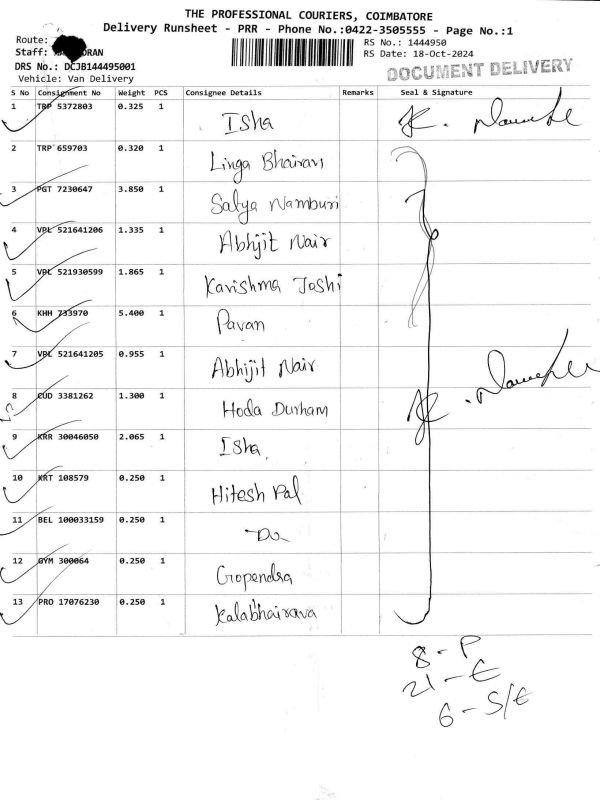 THE PROFESSIONAL COURIERS, COIMBATORE
Delivery Runsheet - PRR - Phone No.:0422-3505555 - Page No.:1
Route:
RS No.: 1444950
Staff: ORAN
RS Date: 18-Oct-2024
DRS No.: DCJB144495001
DOCUMENT DELIVERY
Vehicle: Van Delivery
S No Consignment No Weight PCS Consignee Details Remarks Seal & Signature
1 TRP 5372803 0.325 1 Isha
2 TRP 659703 0.320 1 Linga Bhairavi
3 PGT 7230647 3.850 1 Satya Namburi
4 VPL 521641206 1.335 1 Abhijit Nair
5 VPL 521930599 1.865 1 Karishma Joshi
6 KHH 733970 5.400 1 Pavan
7 VPL 521641205 0.955 1 Abhijit Nair
8 CUD 3381262 1.300 1 Hoda Durham
9 KRR 30046050 2.065 1 Isha
10 KRT 108579 0.250 1 Hitesh Pal
11 BEL 100033159 0.250 1 Do
12 GYM 300064 0.250 1 Gopendra
13 PRO 17076230 0.250 1 Kalabhairava
8 - P
21 - E
6 - S/E